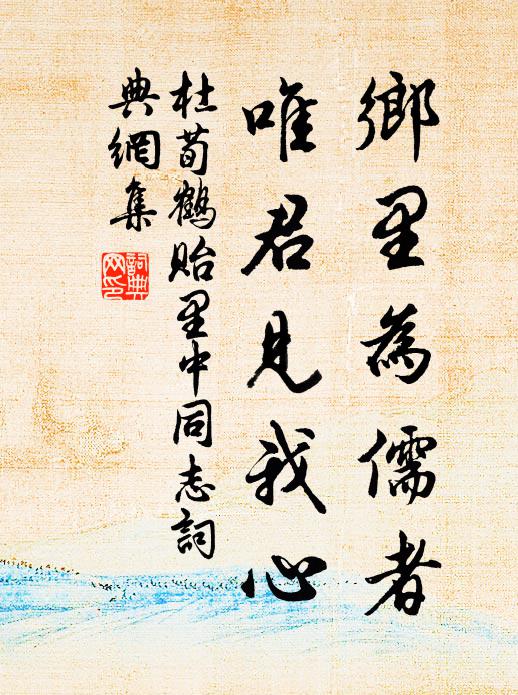 鄉里為儒者
唯君見我心
杜荀鶴貽里中同志詞
典網集
詞典
网印